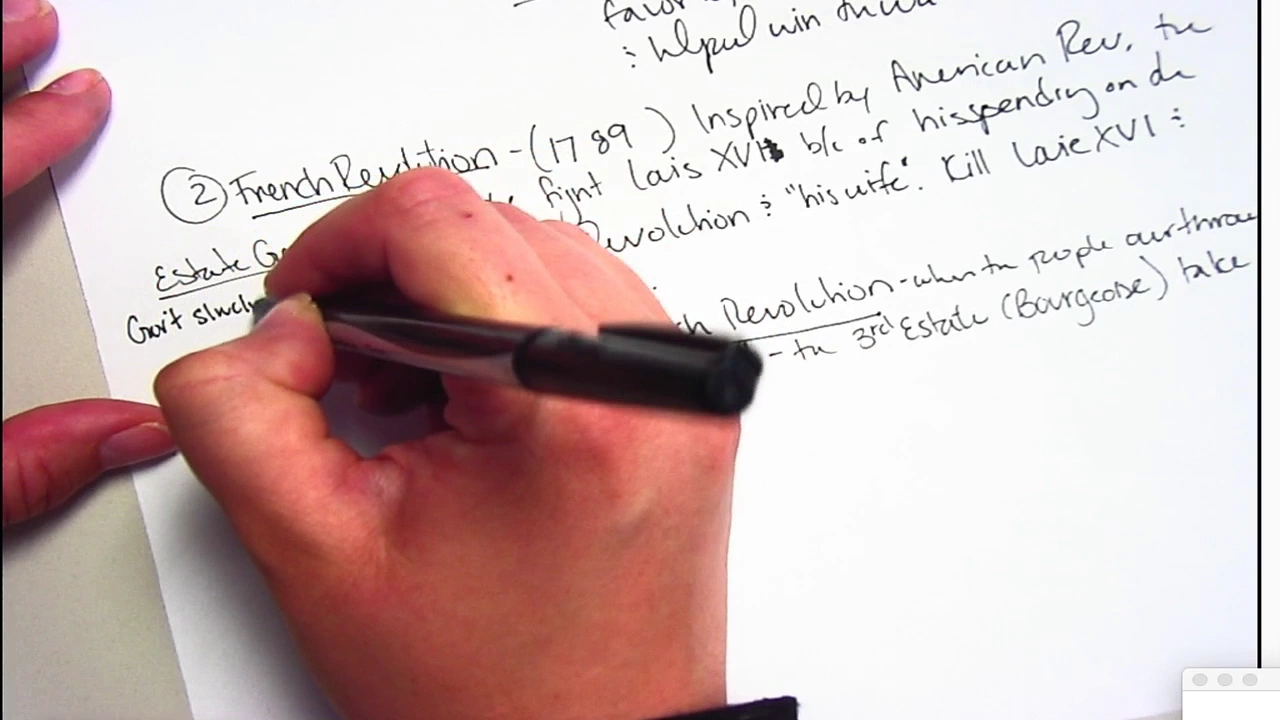 favor
: helped win
② French Revolution - (1789) Inspired by American Rev, the
fight Louis XVI b/c of his spending on the
Revolution : "his wife". Kill Louie XVI :
Estate G
Revolution - when the people overthrow
Gov't struct
- the 3rd Estate (Bourgeoise) take